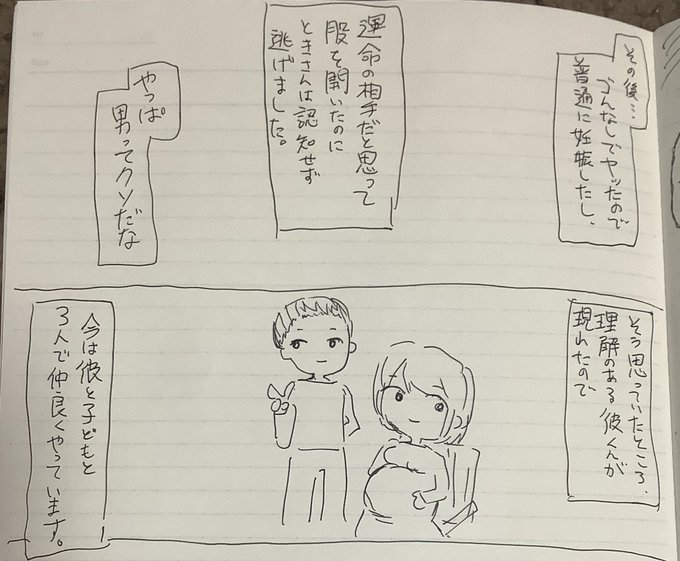 その後…
ゴムなしでヤッたので
普通に妊娠したし、
運命の相手だと思って
股を開いたのに
ときさんは認知せず
逃げました。
やっぱ
男ってクソだな
そう思っていたところ、
理解のある彼くんが
現れたので
今は彼と子どもと
3人で仲良くやっています。